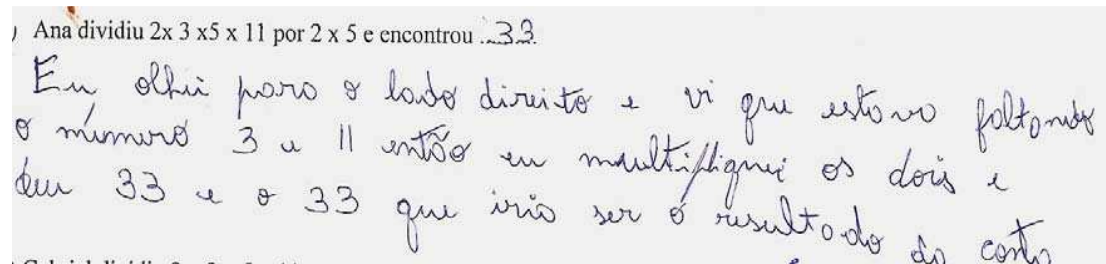 ) Ana dividiu 2x 3 x5 x 11 por 2 x 5 e encontrou ...33.
Eu olhei para o lado direito e vi que estava faltando
o número 3 e 11 então eu multipliquei os dois e
deu 33 e o 33 que iria ser o resultado da conta